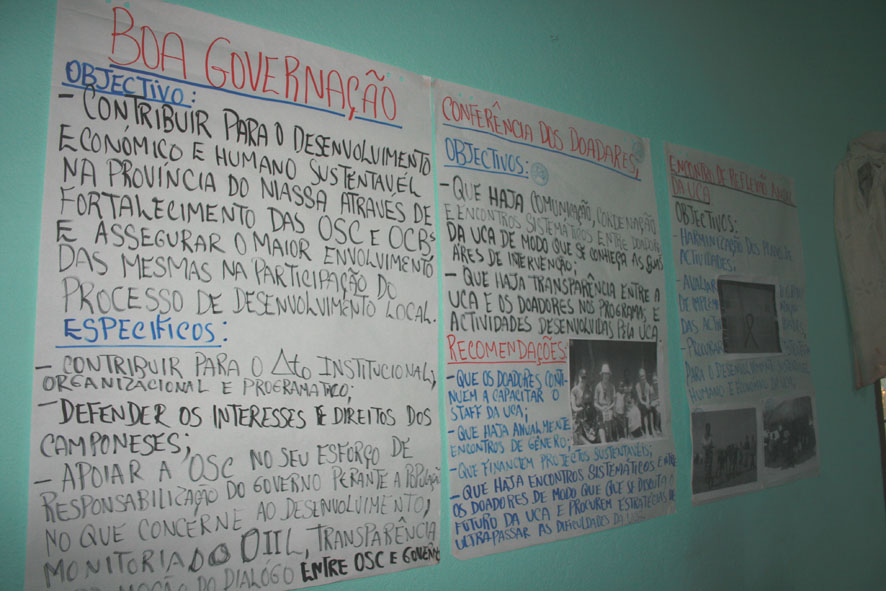 BOA GOVERNAÇÃO
OBJECTIVO:
- CONTRIBUIR PARA O DESENVOLVIMENTO
ECONÓMICO E HUMANO SUSTENTAVÉL
NA PROVÍNCIA DO NIASSA ATRAVÉS DE
FORTALECIMENTO DAS OSC E OCBs
E ASSEGURAR O MAIOR ENVOLVIMENTO
DAS MESMAS NA PARTICIPAÇÃO DO
PROCESSO DE DESENVOLVIMENTO LOCAL.
ESPECIFÍCOS:
- CONTRIBUIR PARA O Δto INSTITUCIONAL,
ORGANIZACIONAL E PROGRAMATICO;
- DEFENDER OS INTERESSES E DIREITOS DOS
CAMPONESES;
- APOIAR A OSC NO SEU ESFORÇO DE
RESPONSABILIZAÇÃO DO GOVERNO PERANTE A POPULAÇÃO
NO QUE CONCERNE AO DESENVOLVIMENTO,
MONITORIA DO OIIL, TRANSPARÊNCIA
DO DIALÓGO ENTRE OSC E GOVERNO
CONFERÊNCIA DOS DOADARES,
OBJECTIVOS:
- QUE HAJA COMUNICAÇÃO, CORDENAÇÃO
E ENCONTROS SISTEMÁTICOS ENTRE DOADORES
DA UCA DE MODO QUE SE CONHEÇA AS SUAS
ARES DE INTERVENÇÃO;
- QUE HAJA TRANSPARÊNCIA ENTRE A
UCA E OS DOADORES NOS PROGRAMAS E
ACTIVIDADES DESENVOLVIDAS PELA UCA.
RECOMENDAÇÕES
- QUE OS DOADORES CONTI-
NUEM A CAPACITAR O
STAFF DA UCA;
- QUE HAJA ANUALMENTE
ENCONTROS DE GÉNERO;
- QUE FINANCIEM PROJECTOS SUSTENTAVEIS;
- QUE HAJA ENCONTROS SISTEMÁTICOS ENTRE
OS DOADORES DE MODO QUE SE DISCUTA O
FUTURO DA UCA E PROCUREM ESTRATÉGIAS DE
ULTRAPASSAR AS DIFICULDADES DA UCA
ENCONTRO DE REFLEXÃO
DA UCA
OBJECTIVOS:
- HARMONIZAÇÃO DOS PLANOS DE
ACTIVIDADES;
- AVALIAR
DAS
- PROCURAR
PARA O DESENVOLVIMENTO
HUMANO E ECONÓMICO DO